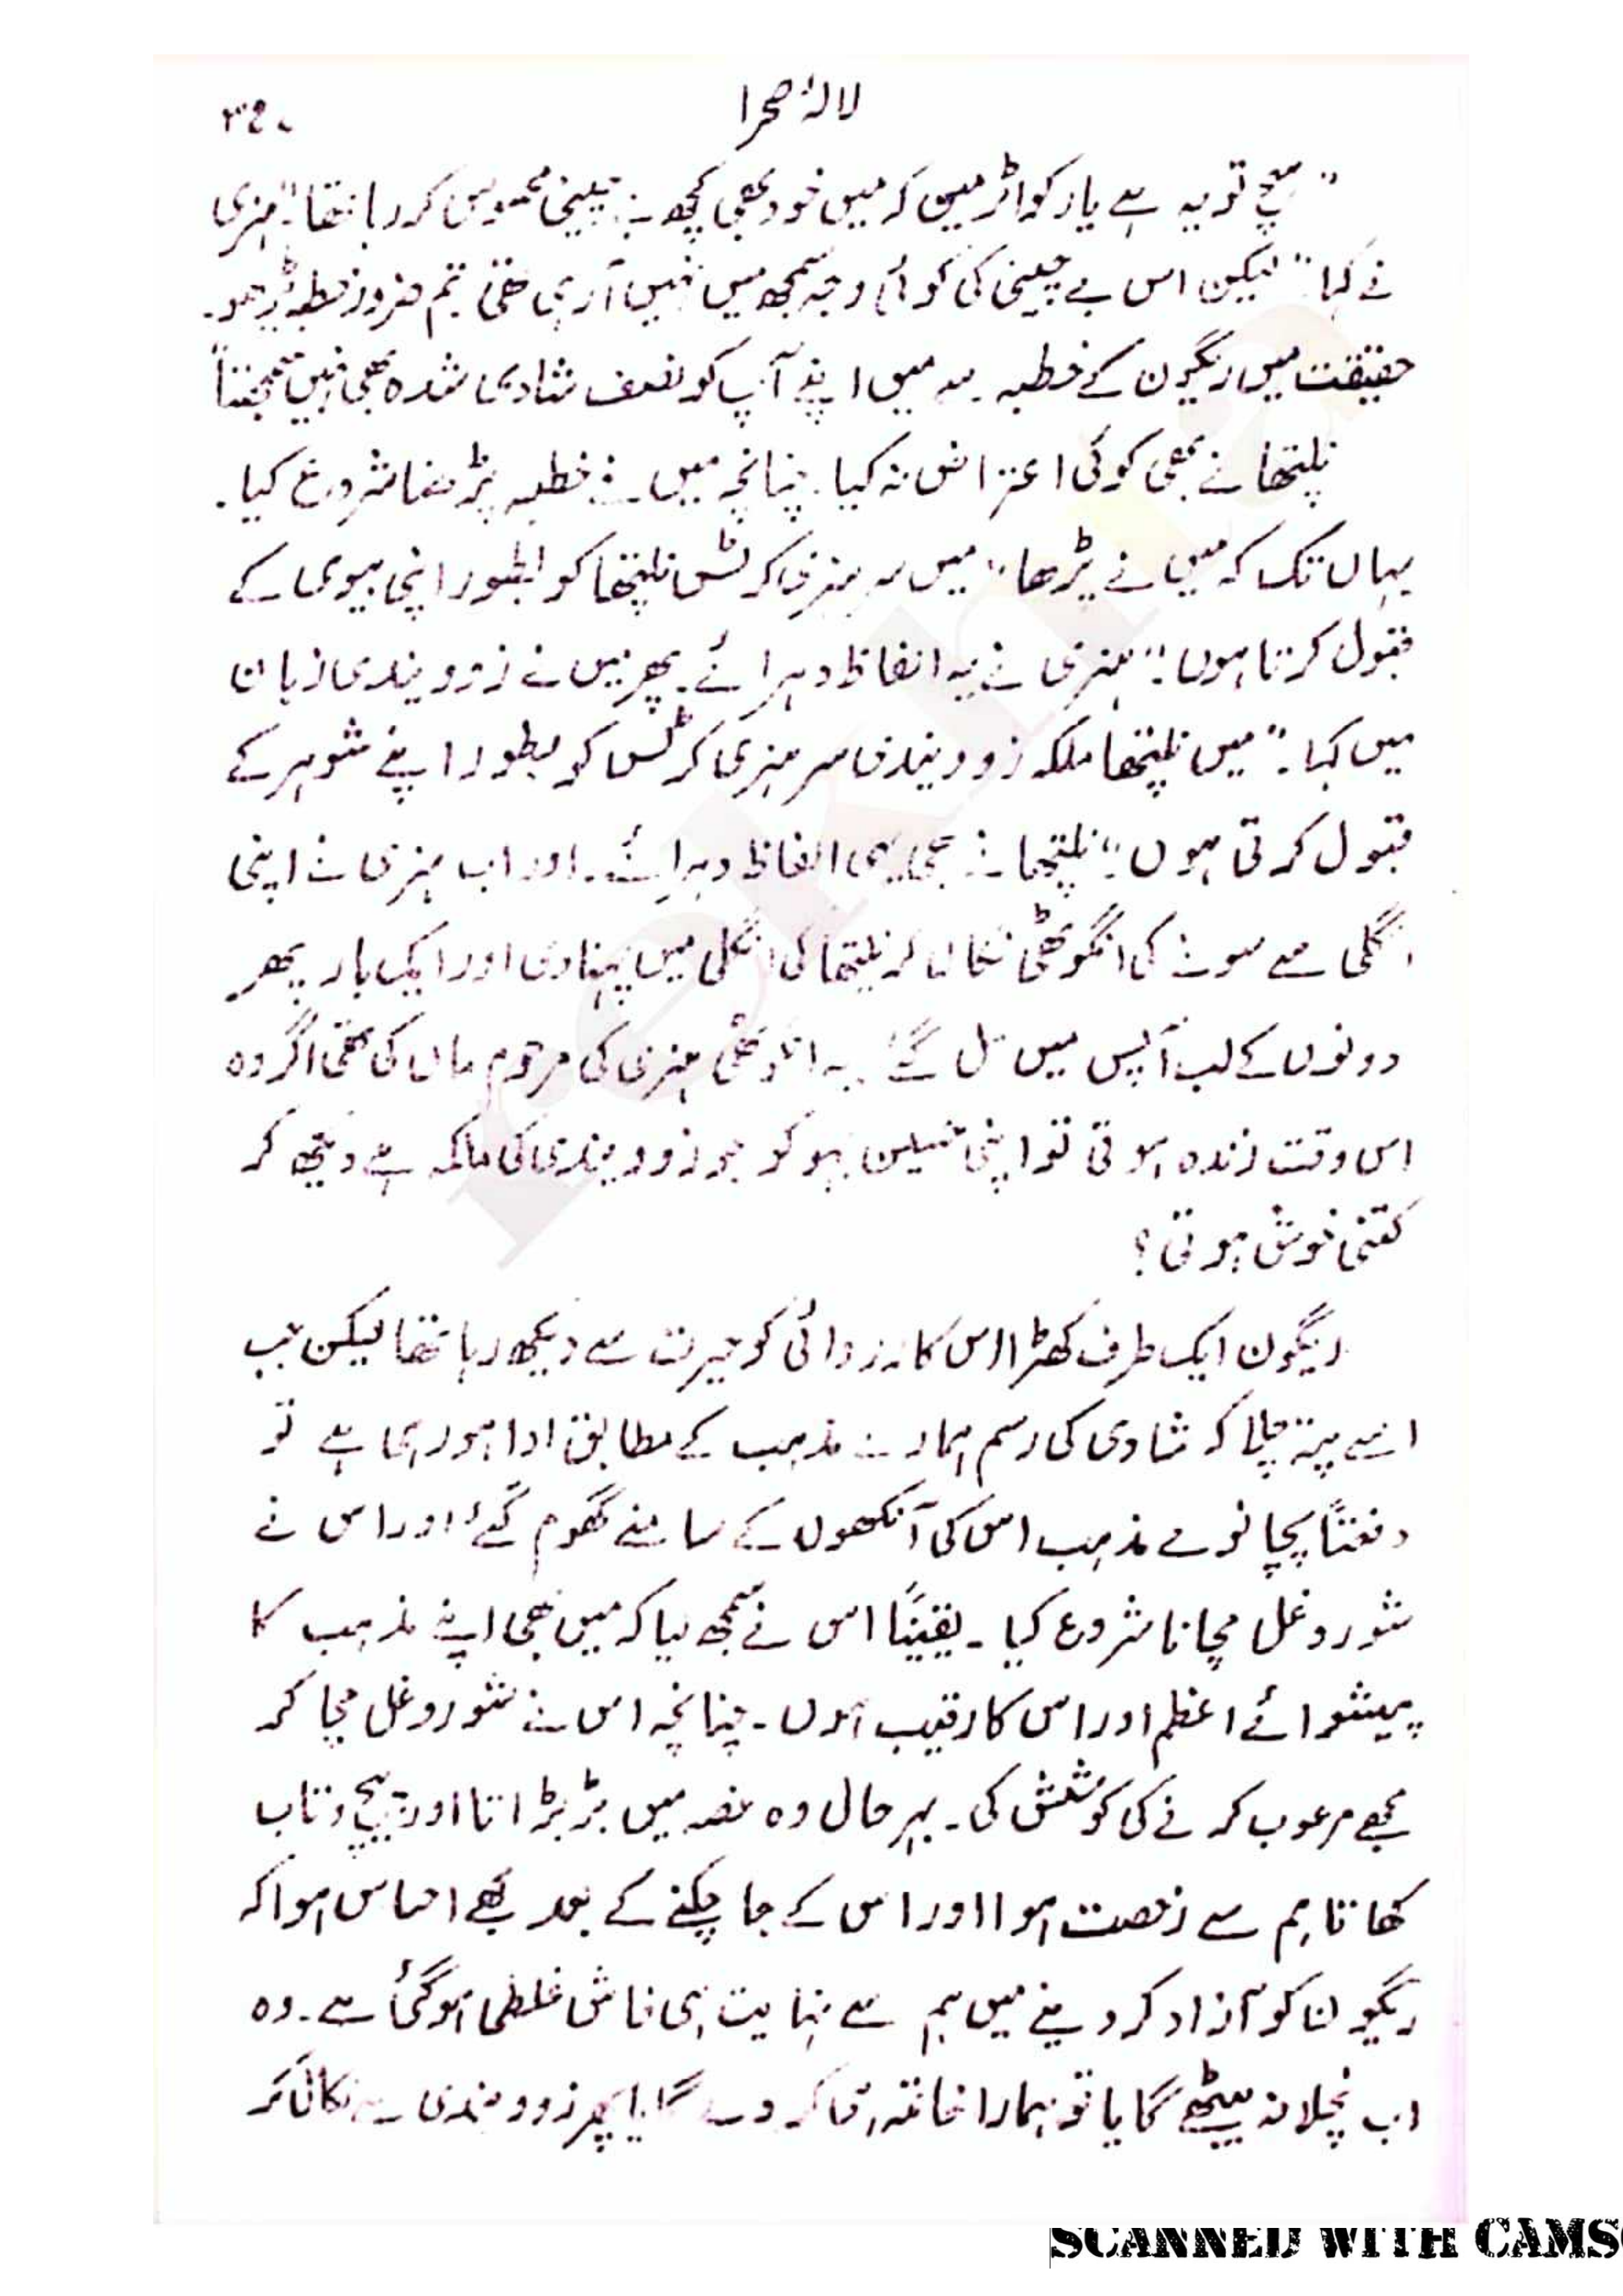 لالۂ صحرا ۳۴۰
" سچ تو یہ ہے یار کواٹرمین کہ میں خود بھی کچھ بے چینی محسوس کر رہا تھا" ہنری
نے کہا" لیکن اس بے چینی کی کوئی وجہ سمجھ میں نہیں آرہی تھی تم ضرور خطبہ پڑھو۔
حقیقت میں ریگون کے خطبہ سے میں اپنے آپ کو نصف شادی شدہ بھی نہیں سمجھتا"
نلیتھا نے بھی کوئی اعتراض نہ کیا۔ چنانچہ میں نے خطبہ پڑھنا شروع کیا۔
یہاں تک کہ میں نے پڑھا" میں سر ہنری کرٹس نلیتھا کو بطور اپنی بیوی کے
قبول کرتا ہوں"۔ ہنری نے یہ الفاظ دہرائے۔ پھر میں نے زوویندی زبان
میں کہا۔" میں نلیتھا ملکہ زوویندی سر ہنری کرٹس کو بطور اپنے شوہر کے
قبول کرتی ہوں"۔ نلیتھا نے بھی یہی الفاظ دہرائے۔ اور اب ہنری نے اپنی
انگلی سے سونے کی انگوٹھی نکال کر نلیتھا کی انگلی میں پہنا دی اور ایک بار پھر
دونوں کے لب آپس میں مل گئے۔ یہ انگوٹھی ہنری کی مرحوم ماں کی تھی اگر وہ
اس وقت زندہ ہوتی تو اپنی حسین بہو کو جو زوویندی کی ملکہ ہے دیکھ کر
کتنی خوش ہوتی؟
ریگون ایک طرف کھڑا اس کارروائی کو حیرت سے دیکھ رہا تھا لیکن جب
اسے پتہ چلا کہ شادی کی رسم ہمارے مذہب کے مطابق ادا ہو رہی ہے تو
دفعتاً پچانوے مذہب اس کی آنکھوں کے سامنے گھوم گئے اور اس نے
شور و غل مچانا شروع کیا۔ یقیناً اس نے سمجھ لیا کہ میں بھی اپنے مذہب کا
پیشوائے اعظم اور اس کا رقیب ہوں۔ چنانچہ اس نے شور و غل مچا کر
مجھے مرعوب کرنے کی کوشش کی۔ بہر حال وہ غصہ میں بڑبڑاتا اور پیچ و تاب
کھاتا ہم سے رخصت ہوا اور اس کے جا چکنے کے بعد مجھے احساس ہوا کہ
ریگون کو آزاد کر دینے میں ہم سے نہایت ہی فاش غلطی ہو گئی ہے۔ وہ
اب نچلا نہ بیٹھے گا یا تو ہمارا خاتمہ ہی کر دے گا یا پھر زوویندی سے نکال کر
rekhta
SCANNED WITH CAMS